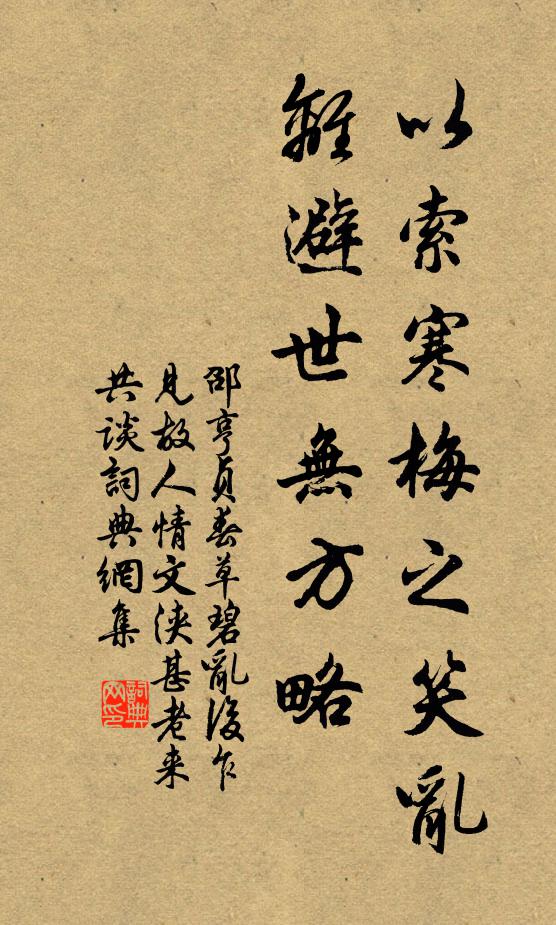 以索寒梅之笑亂
離避世無方略
邵亨貞春草碧亂後乍
見故人情文浹甚老来
共談詞典網集
詞典網印